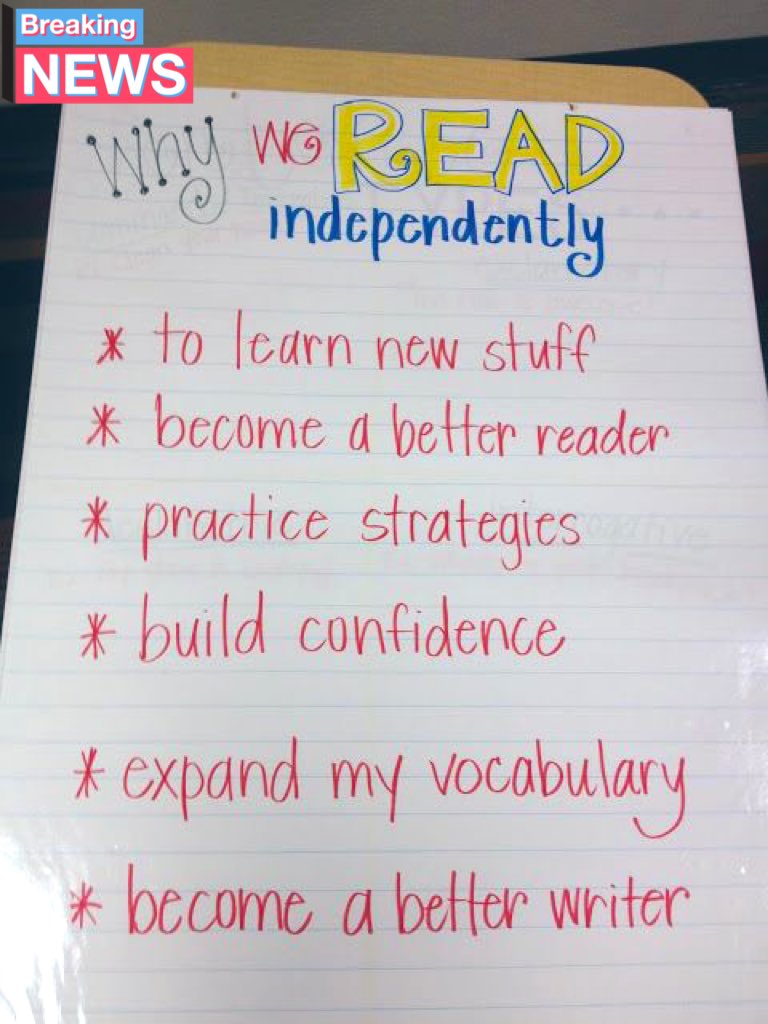 Breaking
NEWS
Why we READ
independently
* to learn new stuff
* become a better reader
* practice strategies
* build confidence
* expand my vocabulary
* become a better writer